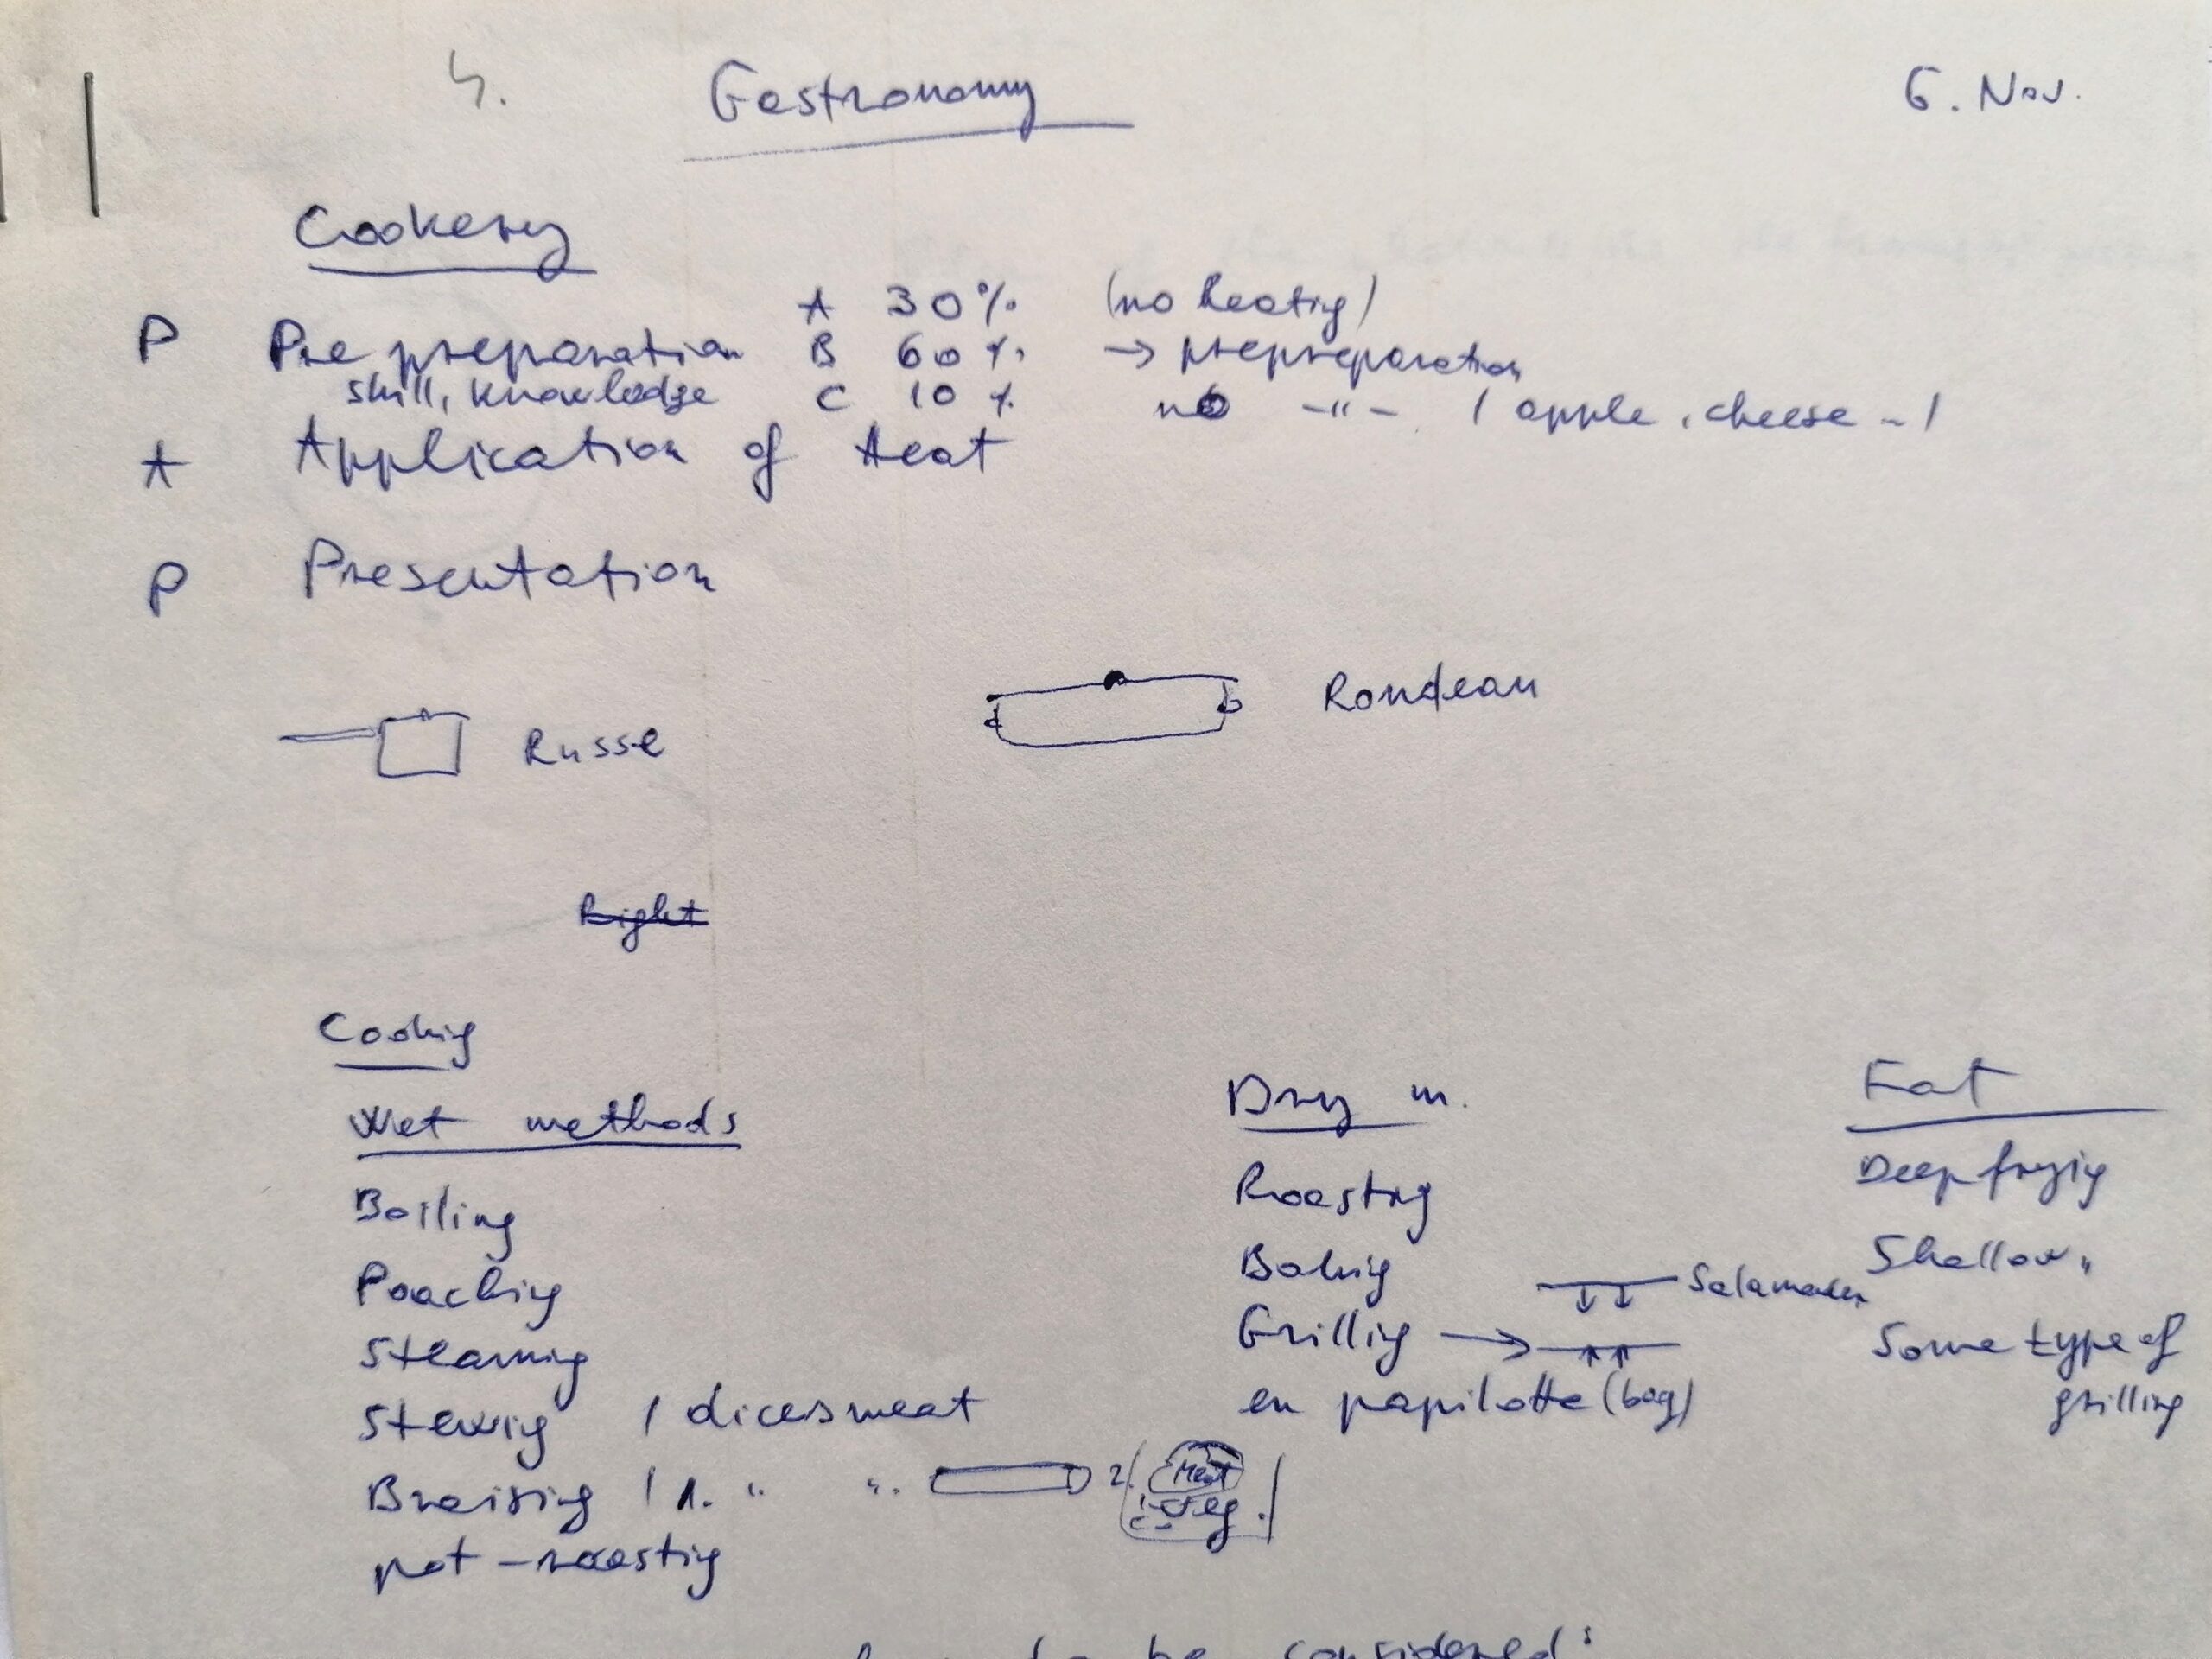 4. Gastronomy 6. Nov.
Cookery
A 30% (no heating)
P Pre preparation B 60% → prepreparation
skill, knowledge C 10% no -"- / apple, cheese - /
A Application of Heat
P Presentation
Russe Rondeau
Right
Cooking
Wet methods Dry m. Fat
Boiling Roasting Deep frying
Poaching Baking Salamander Shallow "
Steaming Grilling → Some type of
Stewing / dices meat en papilotte (bag) grilling
Braising / 1. " ". 2. Meat Veg.
pot-roasting
to be considered: